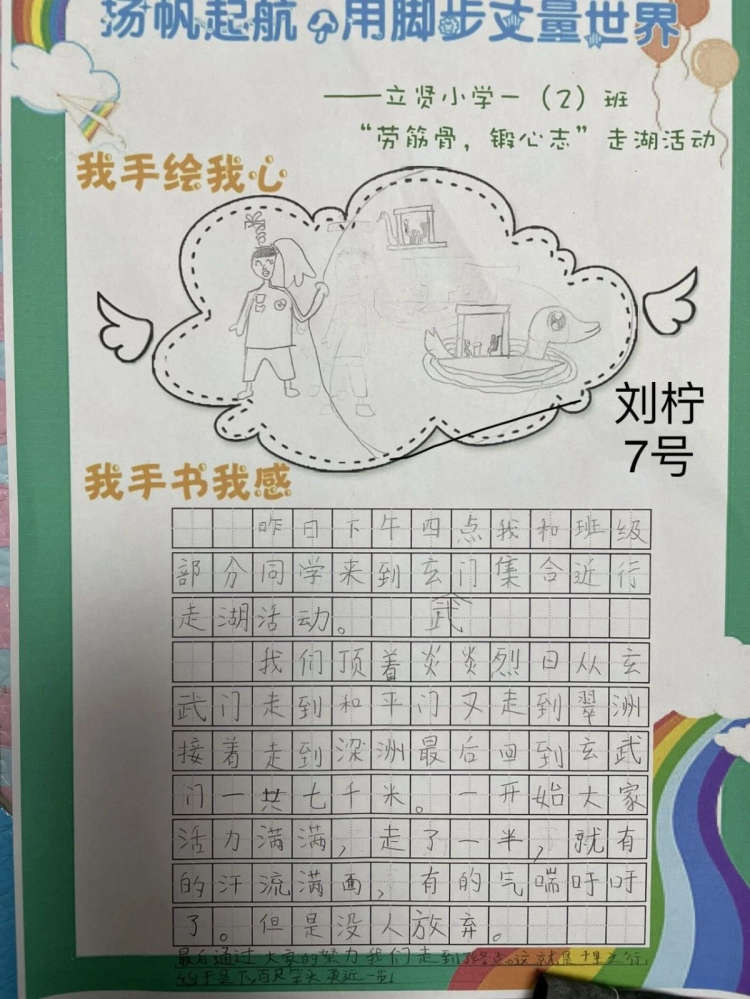 扬帆起航 用脚步丈量世界
——立贤小学一（2）班
“劳筋骨，锻心志”走湖活动
我手绘我心
刘柠
7号
我手书我感
昨日下午四点我和班级
部分同学来到玄门集合近行
走湖活动。 武
我们顶着炎炎烈日从玄
武门走到和平门又走到翠洲
接着走到深洲最后回到玄武
门一共七千米。一开始大家
活力满满，走了一半，就有
的汗流满面，有的气喘吁吁
了。但是没人放弃。
最后通过大家的努力我们走到了终点。这就是千里之行，
始于足下，百尺竿头更近一步